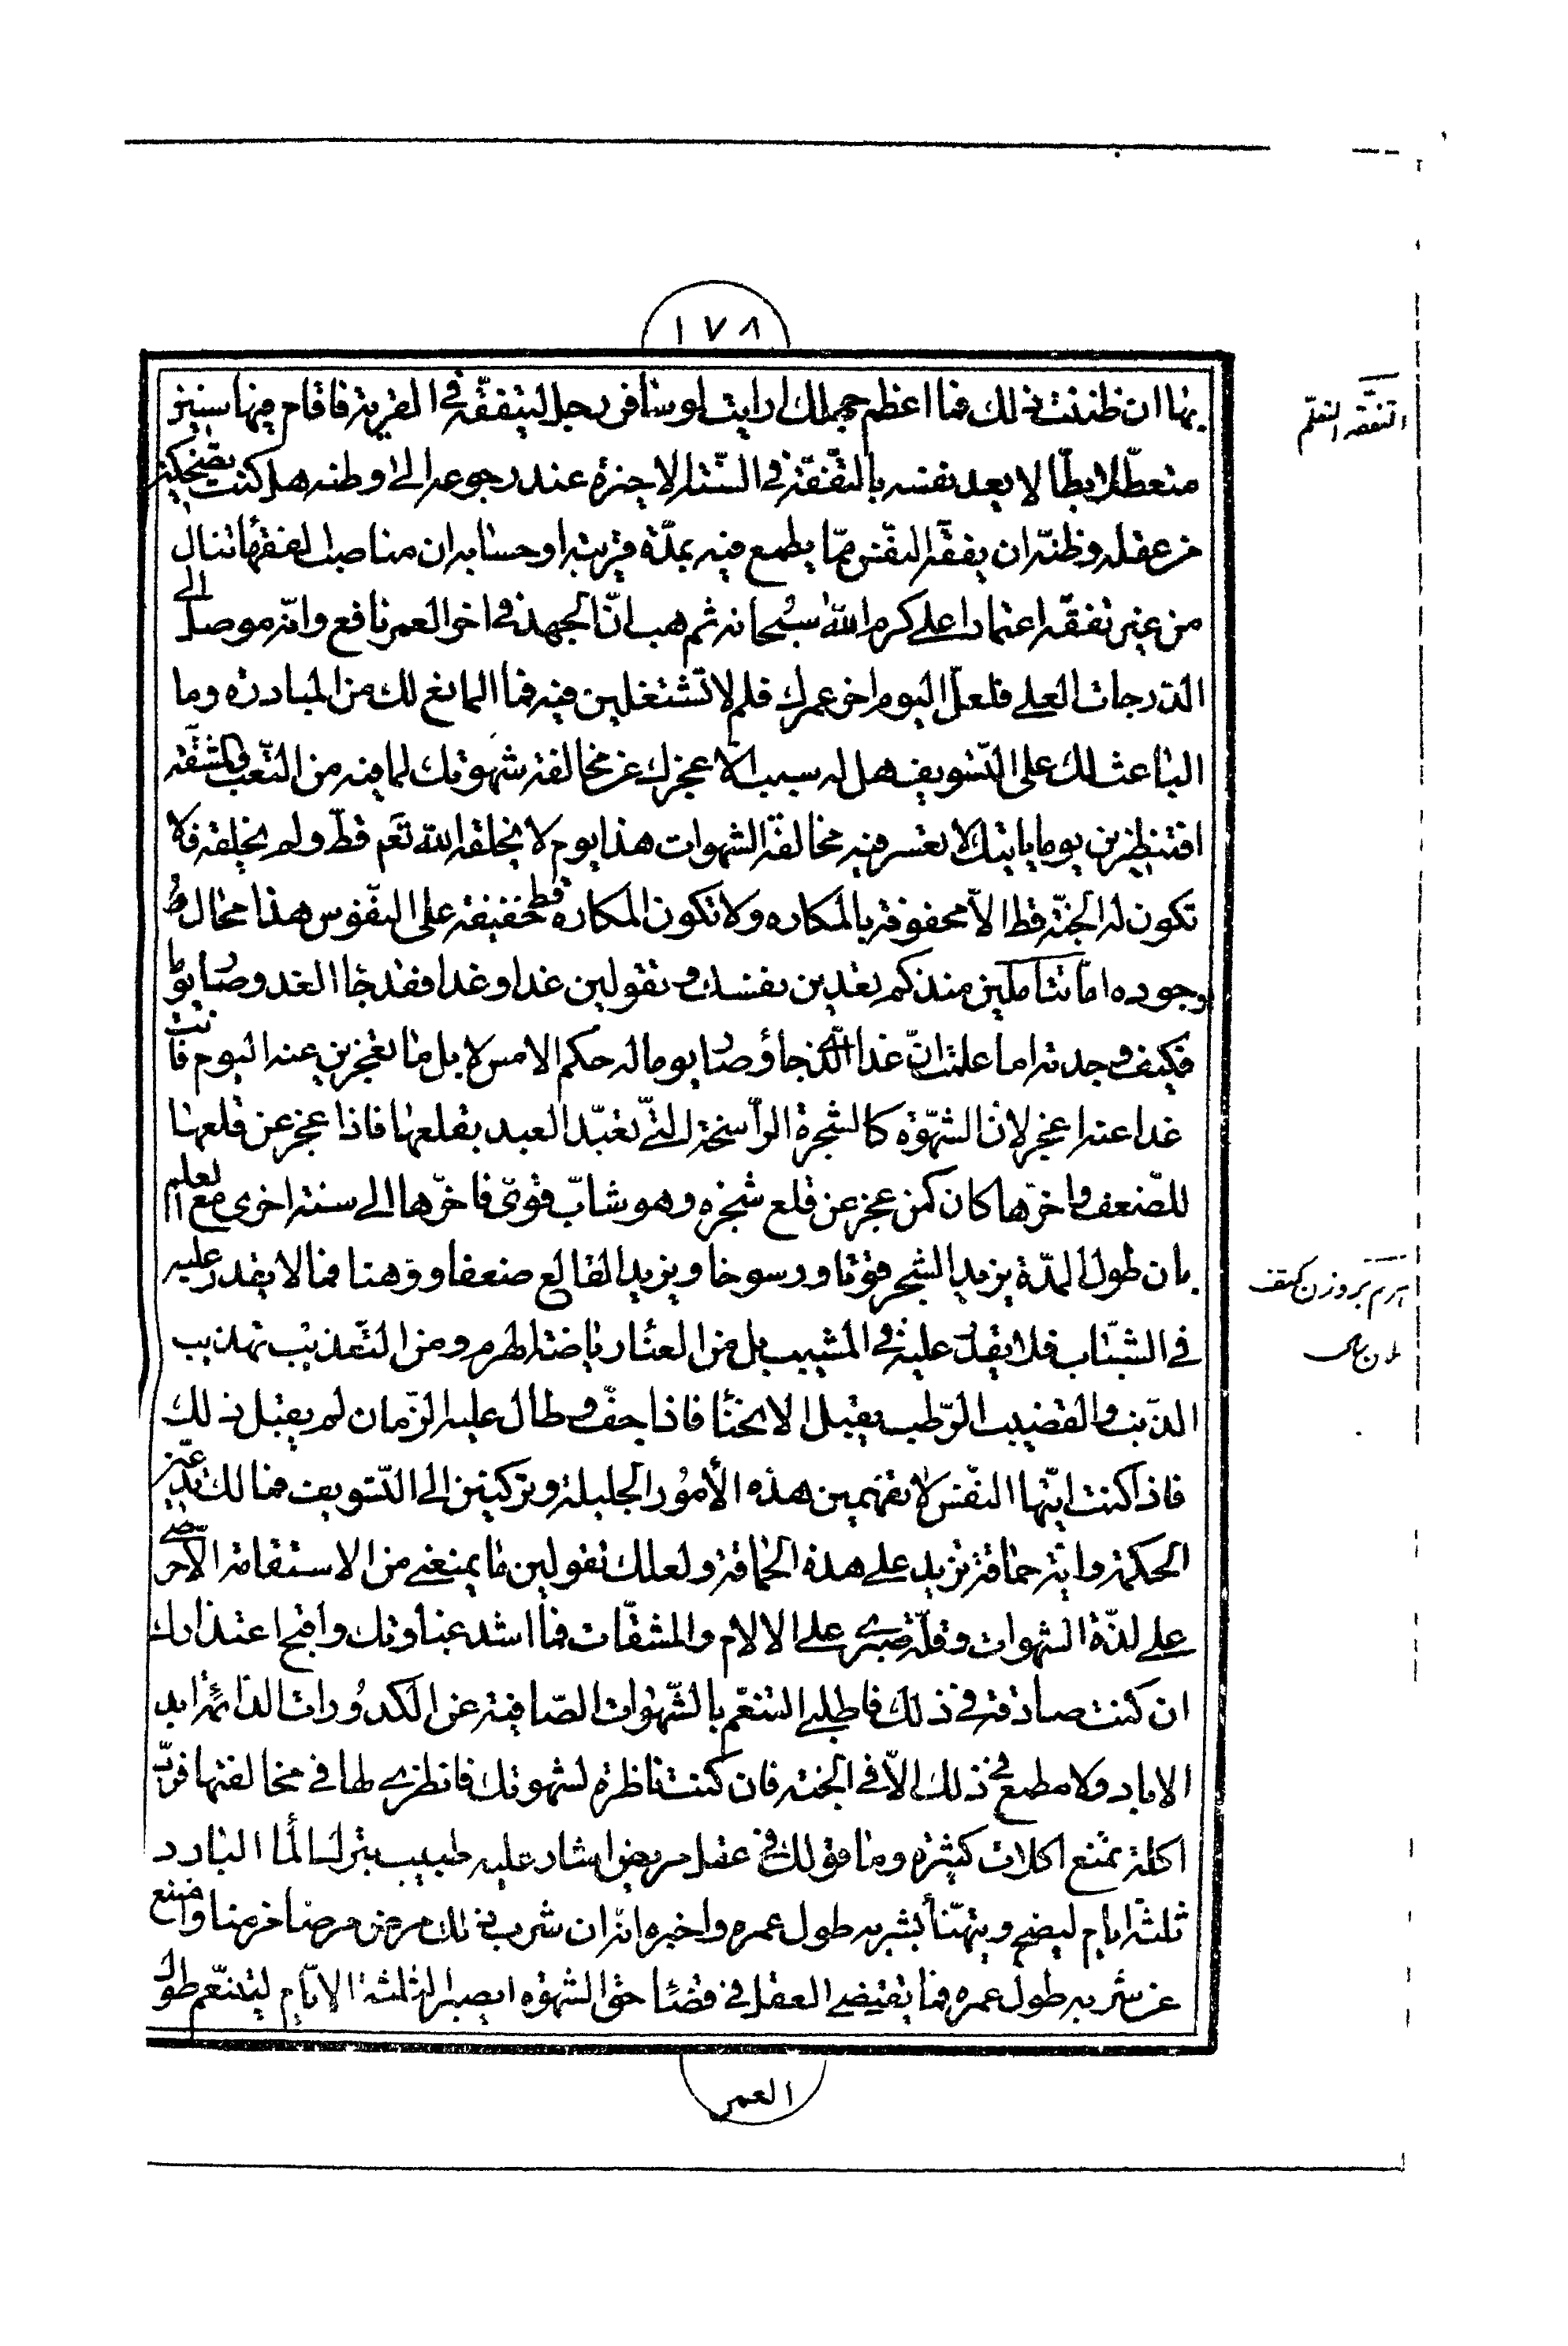 ١٧٨
بها ان ظننت ذلك فما اعظم جهلك ارايت لو سافر رجل ليتفقّه في الغربة فاقام فيها سنين
متعطّلا بطّالا يعد نفسه بالتّفقّه في السّنة الاخيرة عند رجوعه الى وطنه هل كنت تضحكين
من عقله وظنّه ان يفقّه النفس ممّا يطمع فيه بمدّة قريبة او حسابه ان مناصب الفقهاء تنال
من غير تفقّه اعتمادا على كرم الله سبحانه ثم هب انّ الجهد في اخر العمر نافع وانّه موصل الى
الدّرجات العلى فلعلّ اليوم اخر عمرك فلم لا تشتغلين فيه فما المانع لك من المبادرة وما
الباعث لك على التّسويف هل له سبب الّا عجزك عن مخالفة شهوتك لما فيه من التّعب والمشقّة
افتنظرين يوما ياتيك لا تعسر فيه مخالفة الشهوات هذا يوم لا يخلقه الله تعم قطّ ولم يخلقه فلا
تكون له الجنّة قط الّا محفوفة بالمكاره ولا تكون المكاره قط خفيفة على النّفوس هذا محال
وجوده اما تتاملين منذ كم تعدين نفسك وتقولين غدا وغدا فقد جاء الغد وصار يوما
فكيف وجدته اما علمت انّ غدا الّذي جاء وصار يوما له حكم الامس لا بل ما تعجزين عنه اليوم فانت
غدا عنه اعجز لانّ الشهوة كالشجرة الرّاسخة الّتي تعبّد العبد بقلعها فاذا عجز عن قلعها
للضّعف واخّرها كان كمن عجز عن قلع شجرة وهو شابّ قويّ فاخّرها الى سنة اخرى مع العلم
بان طول المدّة يزيد الشجر قوّة ورسوخا ويزيد القالع ضعفا ووهنا فما لا يقدر عليه
في الشّباب فلا يقدر عليه في المشيب بل من العناء رياضة الهرم ومن التّعذيب تهذيب
الذّيب والقضيب الرّطب يقبل الانحناء فاذا جفّ وطال عليه الزّمان لم يقبل ذلك
فاذا كنت ايّتها النّفس لا تفهمين هذه الأمور الجليلة وتركنين الى التّسويف فما لك تدّعين
الحكمة وايّة حماقة تزيد على هذه الحماقة ولعلك تقولين ما يمنعني من الاستقامة الّا حرصي
على لذّة الشهوات وقلّة صبري على الالام والمشقّات فما اشد غباوتك واقبح اعتذارك
ان كنت صادقة في ذلك فاطلبي التنعّم بالشّهوات الصّافية عن الكدورات الدائمة ابد
الاباد ولا مطمع في ذلك الّا في الجنّة فان كنت ناظرة لشهوتك فانظري لها في مخالفتها فربّ
اكلة تمنع اكلات كثيرة وما قولك في عقل مريض اشار عليه طبيب بترك الماء البارد
ثلثة ايام ليصح ويتهنّأ بشربه طول عمره واخبره انّه ان شرب ذلك مرض مرضا مزمنا وامتنع
عن شربه طول عمره فما يقتضي العقل في قضاء حق الشهوة ايصبر الثلثة الايّام ليتنعّم طول
العمر
التفقّه التعلّم
هرم بروزن كتف